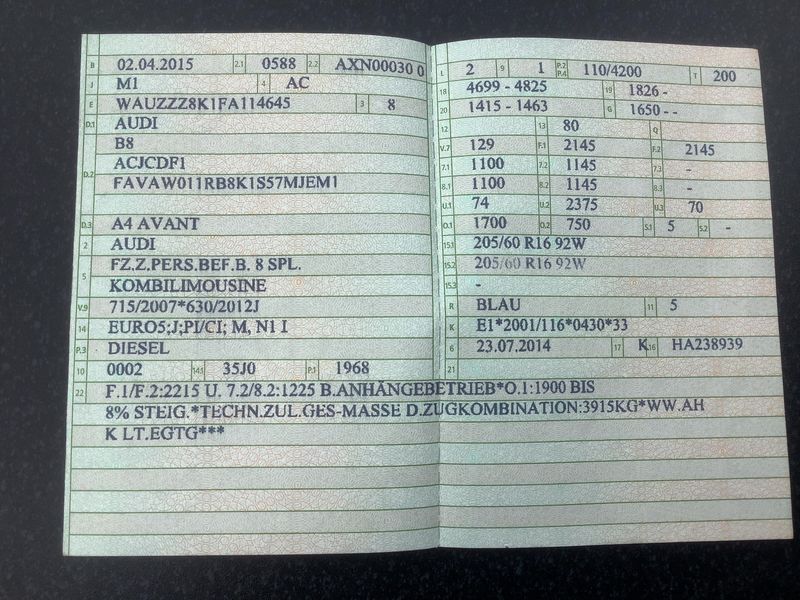 B 02.04.2015 2.1 0588 2.2 AXN00030 0
J M1 4 AC
E WAUZZZ8K1FA114645 3 8
D.1 AUDI
B8
D.2 ACJCDF1
FAVAW011RB8K1S57MJEM1
D.3 A4 AVANT
2 AUDI
5 FZ.Z.PERS.BEF.B. 8 SPL.
KOMBILIMOUSINE
V.9 715/2007*630/2012J
14 EURO5;J;PI/CI; M, N1 I
P.3 DIESEL
10 0002 14.1 35J0 P.1 1968
L 2 9 1 P.2 P.4 110/4200 T 200
18 4699 - 4825 19 1826 -
20 1415 - 1463 G 1650 - -
12 13 80 Q
V.7 129 F.1 2145 F.2 2145
7.1 1100 7.2 1145 7.3 -
8.1 1100 8.2 1145 8.3 -
U.1 74 U.2 2375 U.3 70
O.1 1700 O.2 750 S.1 5 S.2 -
15.1 205/60 R16 92W
15.2 205/60 R16 92W
15.3 -
R BLAU 11 5
K E1*2001/116*0430*33
6 23.07.2014 17 K 16 HA238939
21
22 F.1/F.2:2215 U. 7.2/8.2:1225 B.ANHÄNGEBETRIEB*O.1:1900 BIS
8% STEIG.*TECHN.ZUL.GES-MASSE D.ZUGKOMBINATION:3915KG*WW.AH
K LT.EGTG***